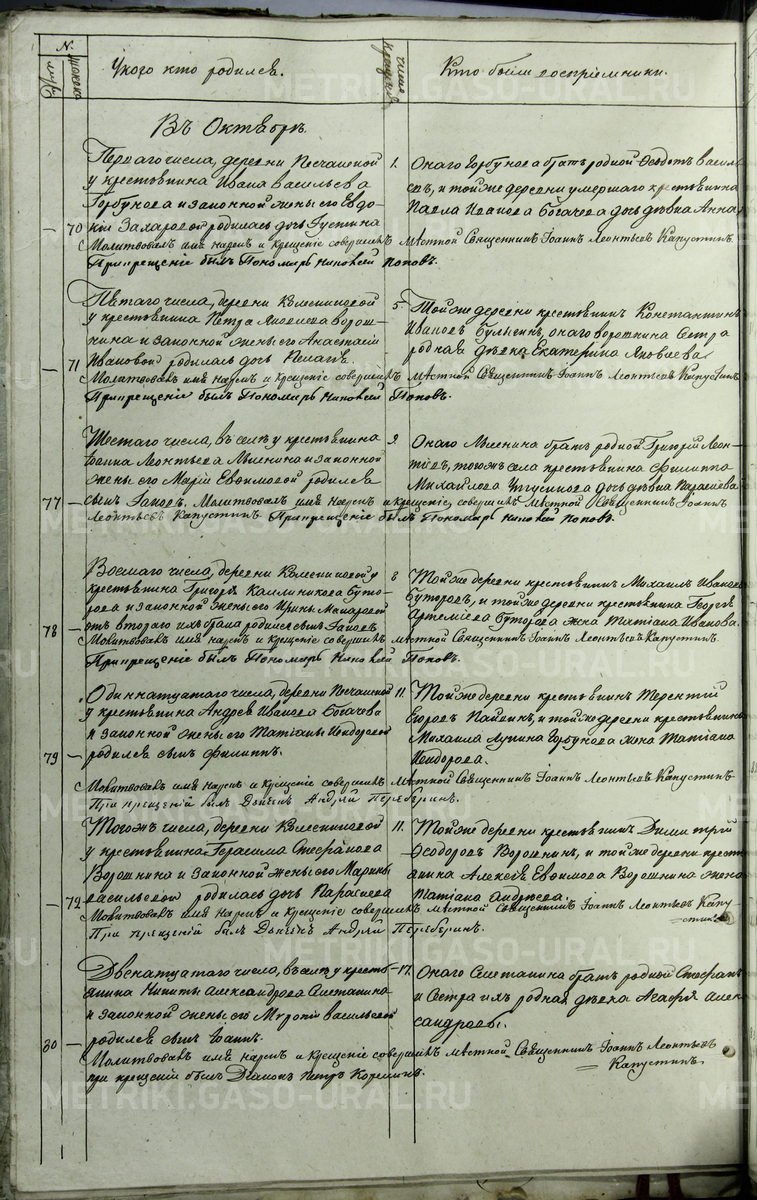 N.
мужс.
женска
У кого кто родился.
число крещенія
Кто были восприемники.
Въ Октябрѣ.
Перваго числа, деревни Песчаной
у крестьянина Ивана Васильева
Горбунова и законной жены его Евдо-
кіи Захаровой родилась дочь Іустина
Молитвовалъ имя нарекъ и крещеніе совершилъ мѣстной Священникъ Іоаннъ Леонтьевъ Капустинъ.
При крещеніе былъ Пономарь Поповъ.
70
1.
Онаго Горбунова братъ родной Ѳеодотъ Василь-
евъ, и той же деревни умершаго крестьянина
Павла Иванова Богачева дочь дѣвка Анна,
Пятаго числа, деревни Колесниковой
у крестьянина Петра Яковлева Ворош-
нина и законной жены его Анастасіи
Ивановой родилась дочь Пелагія.
Молитвовалъ имя нарекъ и крещеніе совершилъ мѣстной Священникъ Іоаннъ Леонтьевъ Капустинъ
При крещеніе былъ Пономарь Поповъ.
71
5.
Той же деревни крестьянинъ Константинъ
Ивановъ онаго Ворошнина сестра
родная дѣвка Екатерина Яковлева
Шестаго числа, въ селѣ у крестьянина
Іоанна Леонтьева и законной
жены его Маріи Евѳимовой родился
сынъ Іаковъ. Молитвовалъ имя нарекъ и крещеніе совершилъ мѣстной Священникъ Іоаннъ
Леонтьевъ Капустинъ При крещеніе былъ Пономарь Поповъ.
77
Онаго братъ родной Григорій Леон-
тьевъ, тогожъ села крестьянина Филиппа
Михайлова дочь дѣвка Параскева
Восмаго числа, деревни Колесниковой у
крестьянина Григорья Каллиникова Буто-
рова и законной жены его Ирины Макаровой
отъ втораго ихъ брака родился сынъ Іаковъ
Молитвовалъ имя нарекъ и крещеніе совершилъ мѣстной Священникъ Іоаннъ Леонтьевъ Капустинъ
При крещеніе былъ Пономарь Поповъ.
78
8
Той же деревни крестьянинъ Михаилъ Ивановъ
Буторовъ, и той же деревни крестьянина Георгія
Артеміева Буторова жена Татіана Иванова.
Одиннатцатаго числа, деревни Песчаной
у крестьянина Андрея Иванова Богачева
и законной жены его Татіаны Исидоровой
родился сынъ Филиппъ.
Молитвовалъ имя нарекъ и крещеніе совершилъ мѣстной Священникъ Іоаннъ Леонтьевъ Капустинъ
При крещеніи былъ Дьячекъ Андрей
79
11.
Той же деревни крестьянинъ Терентій
Егоровъ и той же деревни крестьянина
Михаила Лупина Горбунова жена Татіана
Исидорова.
Тогожъ числа, деревни Колесниковой
у крестьянина Герасима Стефанова
Ворошнина и законной жены его Марины
Васильевой родилась дочь Параскева
Молитвовалъ имя нарекъ и крещеніе совершилъ мѣстной Священникъ Іоаннъ Леонтьевъ Капу-
стинъ
При крещеніи былъ Дьячекъ Андрей
72
11.
Той же деревни крестьянинъ Димитрій
Ѳеодоровъ Ворошнинъ, и той же деревни кресть-
янина Алексія Евѳимова Ворошнина жена
Татіана Андреева.
Двенатцатаго числа, въ селѣ у кресть-
янина Никиты Александрова Сметанина
и законной жены его Васильевой
родился сынъ Іоаннъ.
Молитвовалъ имя нарекъ и крещеніе совершилъ мѣстной Священникъ Іоаннъ Леонтьевъ
Капустинъ
при крещеніи былъ Діаконъ Петръ
80
Онаго Сметанина братъ родной Стефанъ
и сестра ихъ родная дѣвка Агафія Алек-
сандровы.
METRIKI.GASO-URAL.RU